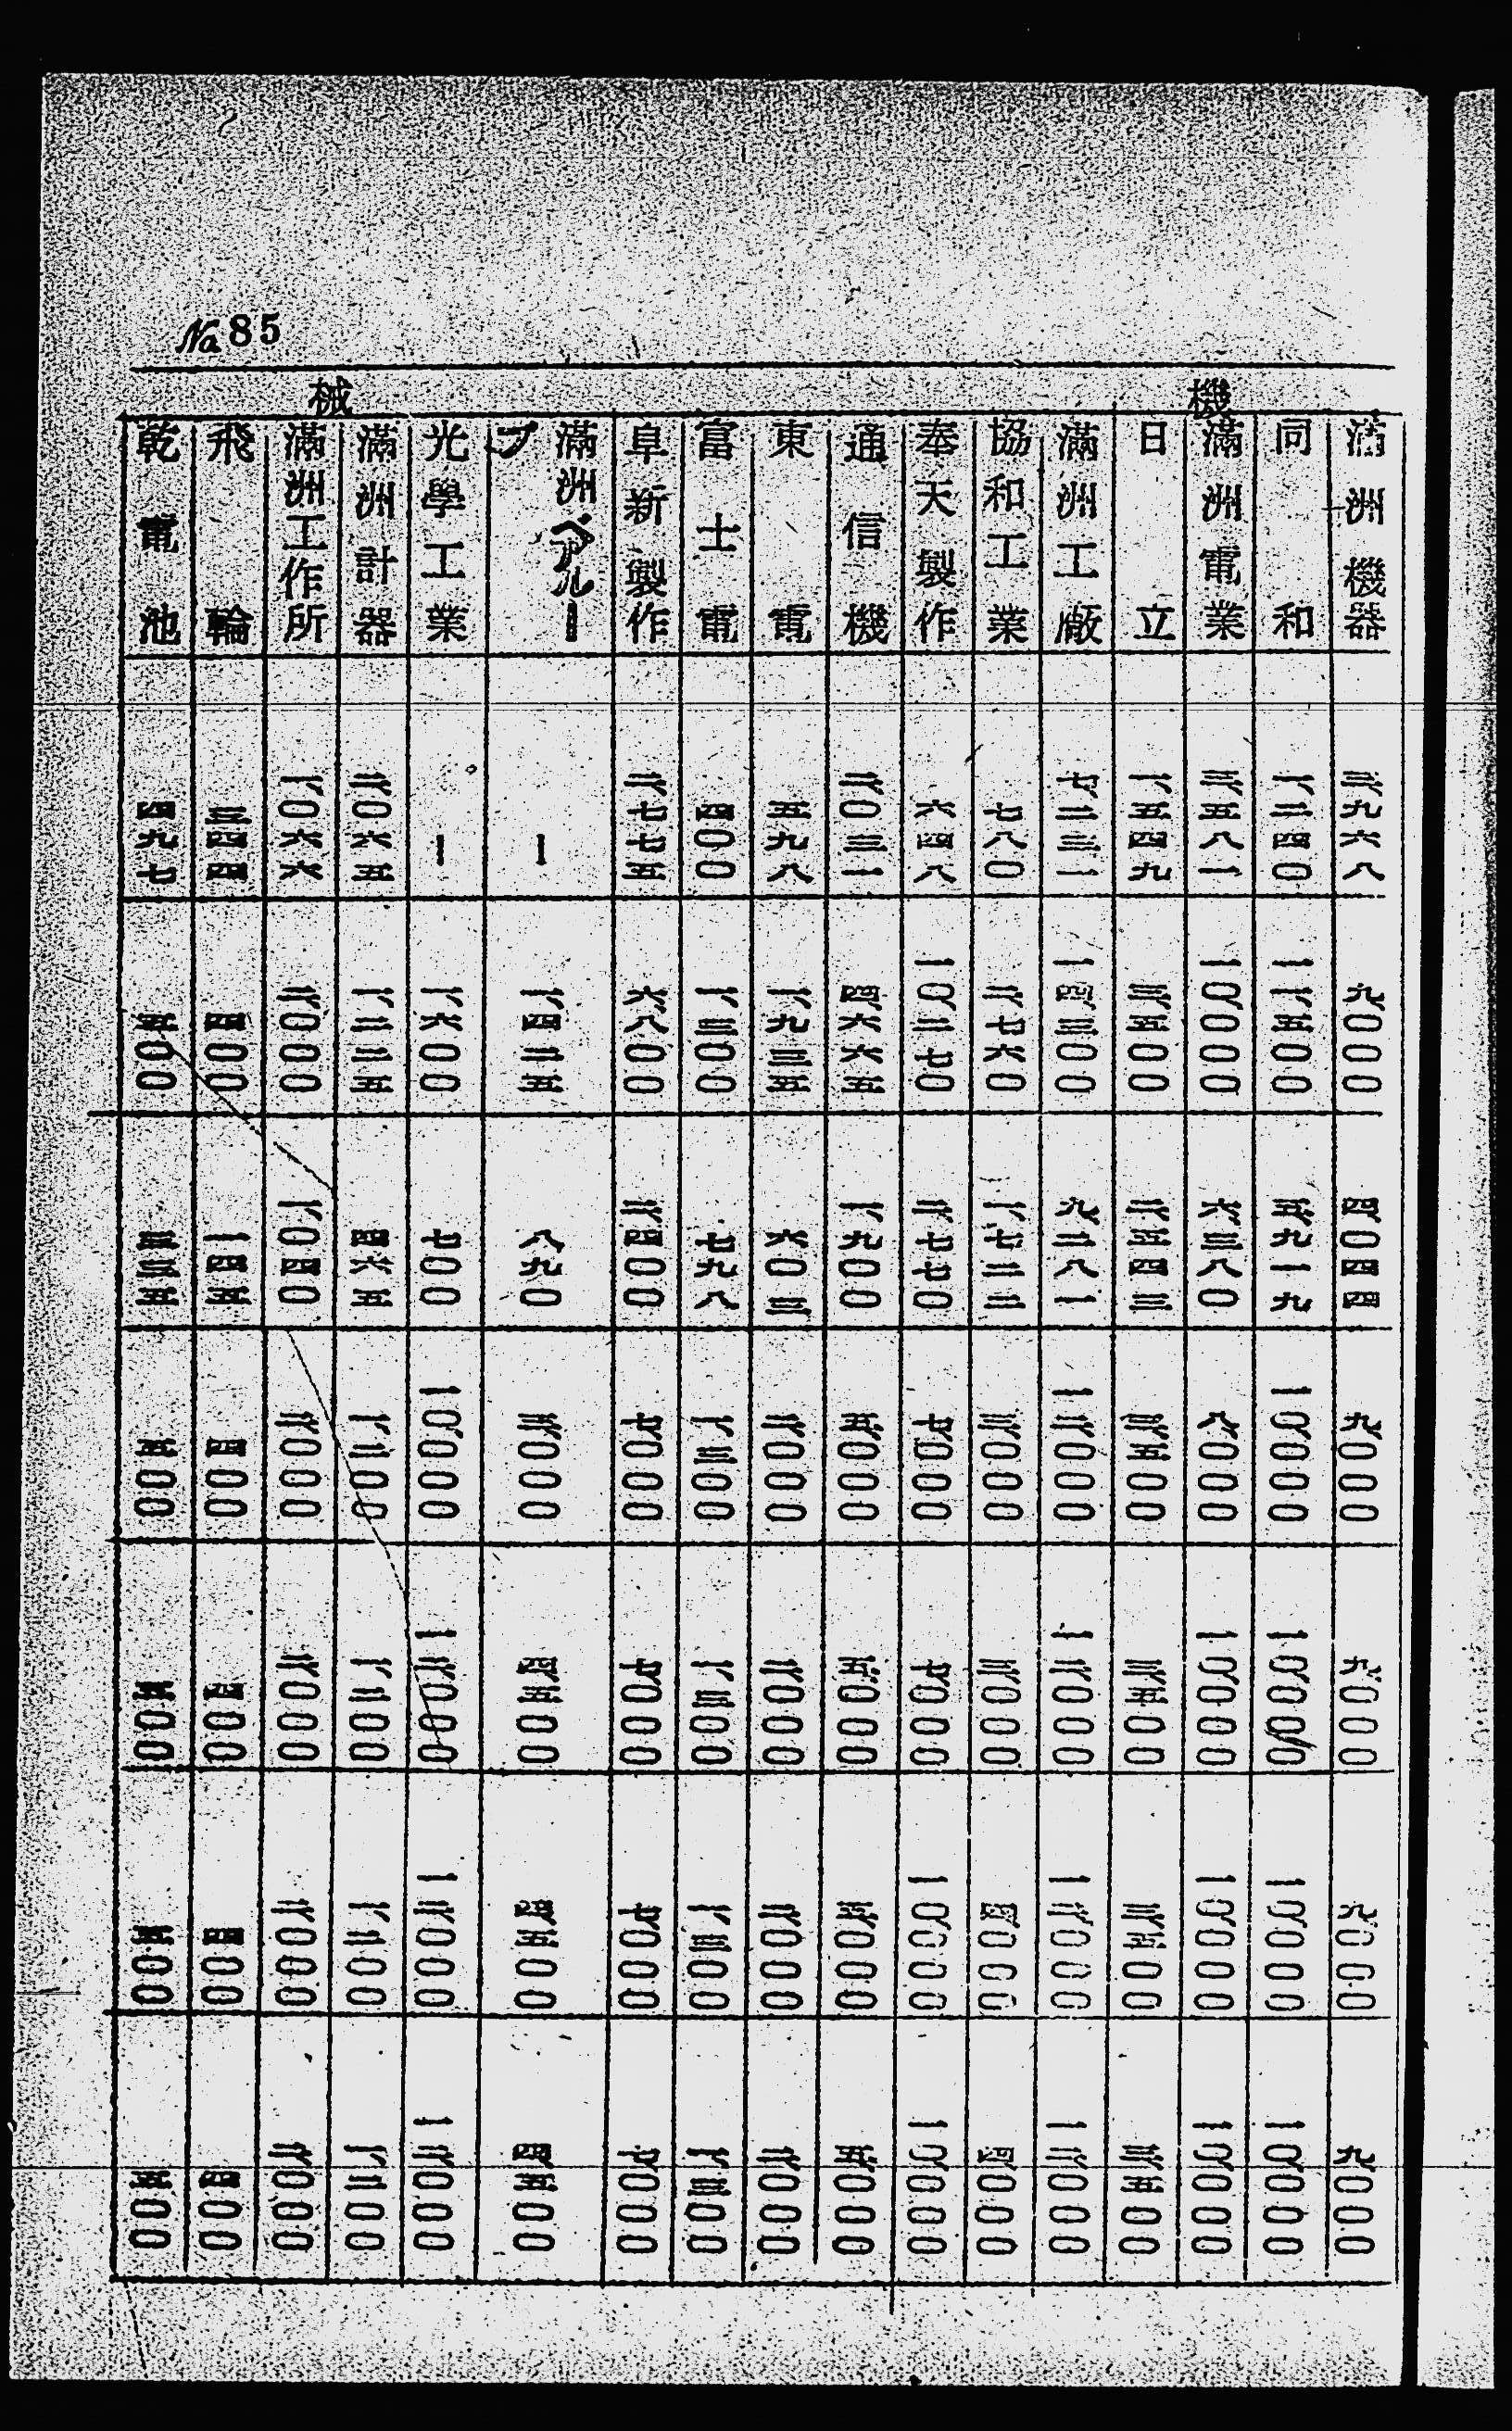 №85
機械
滿洲機器 三、九六八 九、〇〇〇 四、〇四四 九、〇〇〇 九、〇〇〇 九、〇〇〇 九、〇〇〇
同和 一、二四〇 一一、五〇〇 五、九一九 一〇、〇〇〇 一〇、〇〇〇 一〇、〇〇〇 一〇、〇〇〇
滿洲電業 三、五八一 一〇、〇〇〇 六、三八〇 八、〇〇〇 一〇、〇〇〇 一〇、〇〇〇 一〇、〇〇〇
日立 一、五四九 三、五〇〇 二、五四三 三、五〇〇 三、五〇〇 三、五〇〇 三、五〇〇
滿洲工廠 七、二三一 一四、三〇〇 九、二八一 一二、〇〇〇 一二、〇〇〇 一二、〇〇〇 一二、〇〇〇
協和工業 七八〇 二、七六〇 一、七二三 三、〇〇〇 三、〇〇〇 四、〇〇〇 四、〇〇〇
奉天製作 六四八 一〇、二七〇 二、七七〇 七、〇〇〇 七、〇〇〇 一〇、〇〇〇 一〇、〇〇〇
通信機 二、〇三一 四、六六五 一、九〇〇 五、〇〇〇 五、〇〇〇 五、〇〇〇 五、〇〇〇
東電 五九八 一、九三五 六〇三 二、〇〇〇 二、〇〇〇 二、〇〇〇 二、〇〇〇
富士電 四〇〇 一、三〇〇 七九八 一、三〇〇 一、三〇〇 一、三〇〇 一、三〇〇
阜新製作 二、七七五 六、八〇〇 三、四〇〇 七、〇〇〇 七、〇〇〇 七、〇〇〇 七、〇〇〇
滿洲ベアリー
ブ ー 一、四二五 八九〇 三、〇〇〇 四、五〇〇 四、五〇〇 四、五〇〇
光學工業 ー 一、六〇〇 七〇〇 一〇、〇〇〇 一二、〇〇〇 一二、〇〇〇 一二、〇〇〇
滿洲計器 二、〇六五 一、二二五 四六五 一、二〇〇 一、二〇〇 一、二〇〇 一、二〇〇
滿洲工作所 一、〇六六 二、〇〇〇 一、〇四〇 二、〇〇〇 二、〇〇〇 二、〇〇〇 二、〇〇〇
飛輪 三四四 四〇〇 一四五 四〇〇 四〇〇 四〇〇 四〇〇
乾電池 四九七 五〇〇 三三五 五〇〇 五〇〇 五〇〇 五〇〇